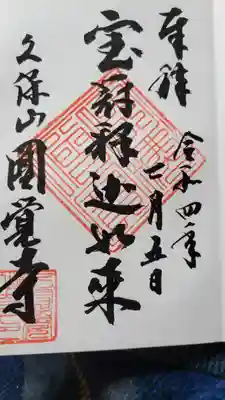 奉拝
令和四年二月五日
宝冠釈迦如来
久保山圓覚寺